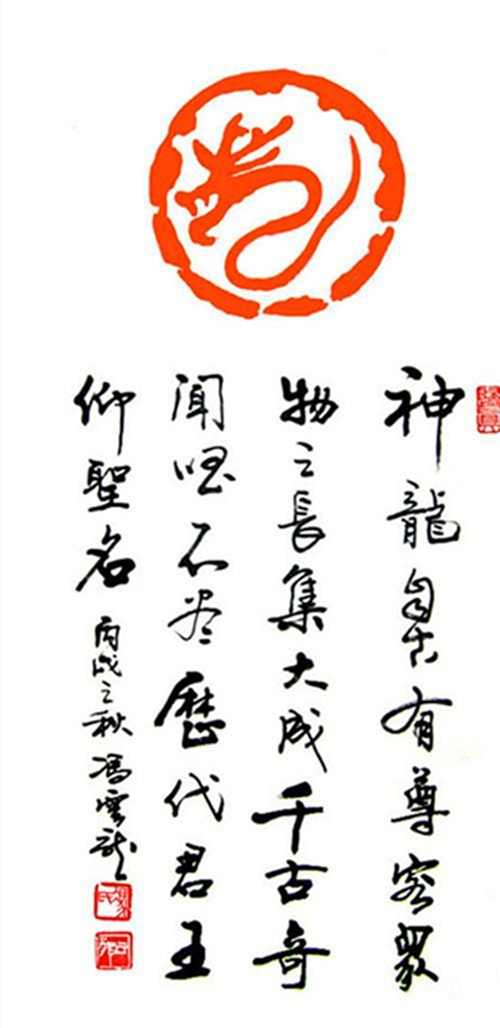 神龍自古有尊容眾
物之長集大成千古奇
聞不尽歷代君王
仰聖名 丙戌之秋 馮雲龍